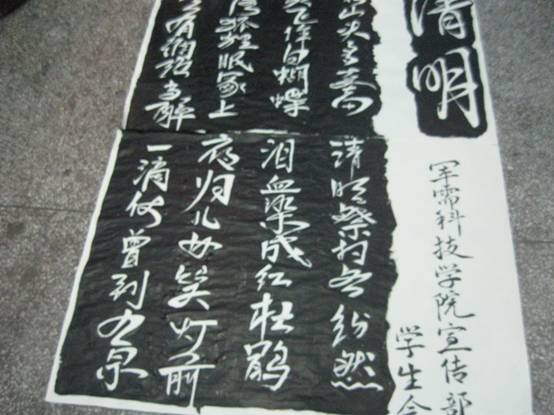 清明
军需科技学院宣传部
学生会
山头多墓田
清明祭扫各纷然
飞作白蝴蝶
泪血染成红杜鹃
狐狸眠冢上
夜归儿女笑灯前
有酒须当醉
一滴何曾到九泉